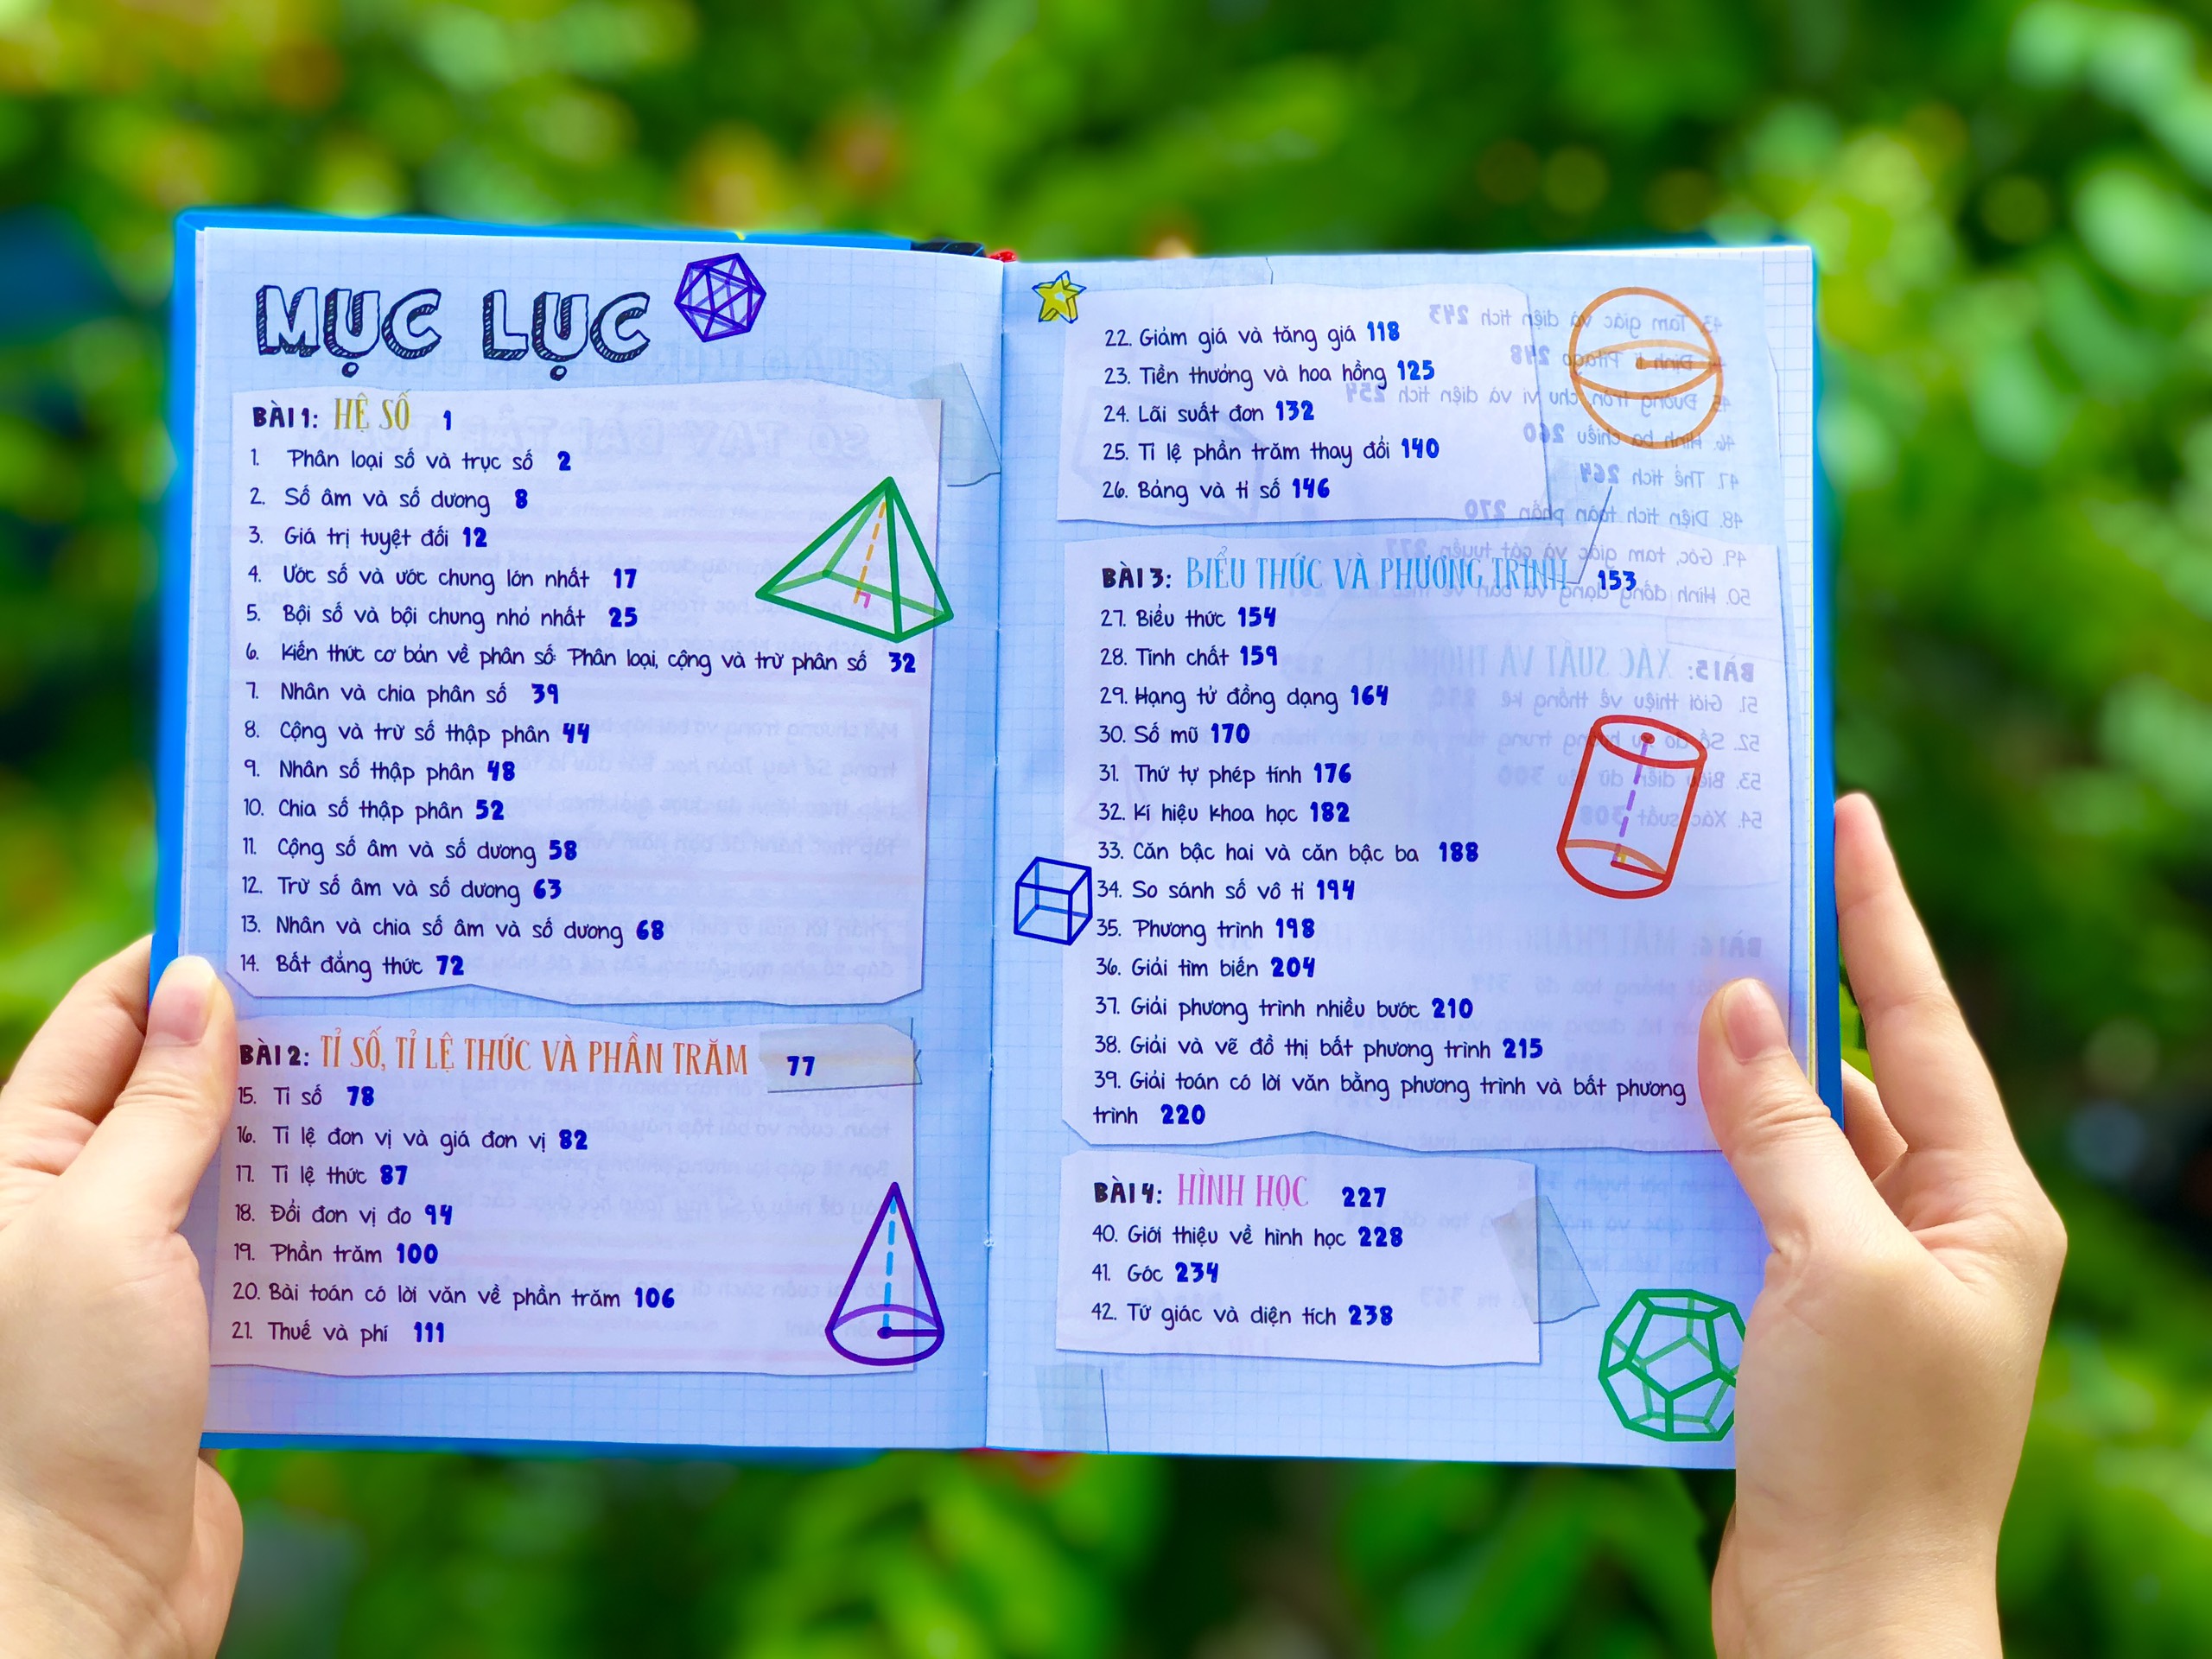 MỤC LỤC
BÀI 1: HỆ SỐ 1
1. Phân loại số và trục số 2
2. Số âm và số dương 8
3. Giá trị tuyệt đối 12
4. Ước số và ước chung lớn nhất 17
5. Bội số và bội chung nhỏ nhất 25
6. Kiến thức cơ bản về phân số: Phân loại, cộng và trừ phân số 32
7. Nhân và chia phân số 39
8. Cộng và trừ số thập phân 44
9. Nhân số thập phân 48
10. Chia số thập phân 52
11. Cộng số âm và số dương 58
12. Trừ số âm và số dương 63
13. Nhân và chia số âm và số dương 68
14. Bất đẳng thức 72
BÀI 2: TỈ SỐ, TỈ LỆ THỨC VÀ PHẦN TRĂM 77
15. Tỉ số 78
16. Tỉ lệ đơn vị và giá đơn vị 82
17. Tỉ lệ thức 87
18. Đổi đơn vị đo 94
19. Phần trăm 100
20. Bài toán có lời văn về phần trăm 106
21. Thuế và phí 111
22. Giảm giá và tăng giá 118
23. Tiền thưởng và hoa hồng 125
24. Lãi suất đơn 132
25. Tỉ lệ phần trăm thay đổi 140
26. Bảng và tỉ số 146
BÀI 3: BIỂU THỨC VÀ PHƯƠNG TRÌNH 153
27. Biểu thức 154
28. Tính chất 159
29. Hạng tử đồng dạng 164
30. Số mũ 170
31. Thứ tự phép tính 176
32. Kí hiệu khoa học 182
33. Căn bậc hai và căn bậc ba 188
34. So sánh số vô tỉ 194
35. Phương trình 198
36. Giải tìm biến 204
37. Giải phương trình nhiều bước 210
38. Giải và vẽ đồ thị bất phương trình 215
39. Giải toán có lời văn bằng phương trình và bất phương
trình 220
BÀI 4: HÌNH HỌC 227
40. Giới thiệu về hình học 228
41. Góc 234
42. Tứ giác và diện tích 238